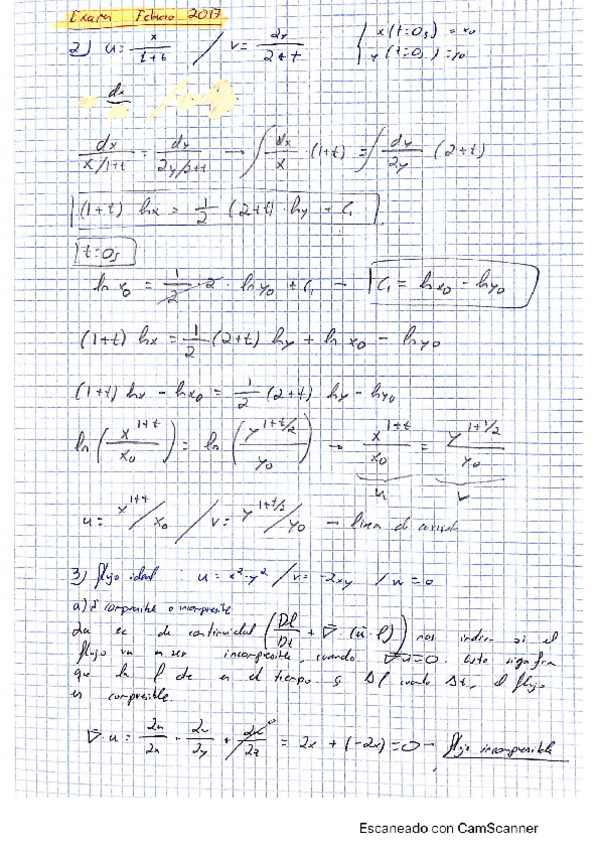 Examen Febrero 2017
2) u = x/(1+t) / v = 2y/(2+t) { x(t=0s) = x0
y(t=0s) = y0
dx
dx/(x/1+t) = dy/(2y/2+t) → ∫ dx/x · (1+t) = ∫ dy/2y (2+t)
(1+t) lnx = 1/2 (2+t) · lny + C1
t=0s
ln x0 = 1/2 · 2 · lny0 + C1 → C1 = lnx0 - lny0
(1+t) lnx = 1/2 (2+t) lny + ln x0 - lny0
(1+t) lnx - lnx0 = 1/2 (2+t) lny - lny0
ln(x^(1+t)/x0) = ln(y^(1+t/2)/y0) → x^(1+t)/x0 = y^(1+t/2)/y0
u v
u = x^(1+t)/x0 / v = y^(1+t/2)/y0 → linea de corriente
3) flujo ideal : u = x²-y² / v = -2xy / w = 0
a) ¿ compresible o incompresible
La ec de continuidad (Dρ/Dt + ∇·(u·ρ)) nos indica si el
flujo va a ser incompresible, cuando ∇u=0. Esto significa
que la ρ cte en el tiempo. Si Δρ cuando Δt, el flujo
es compresible.
∇·u = ∂u/∂x + ∂v/∂y + ∂w/∂z = 2x + (-2x) = 0 → flujo incompresible
Escaneado con CamScanner